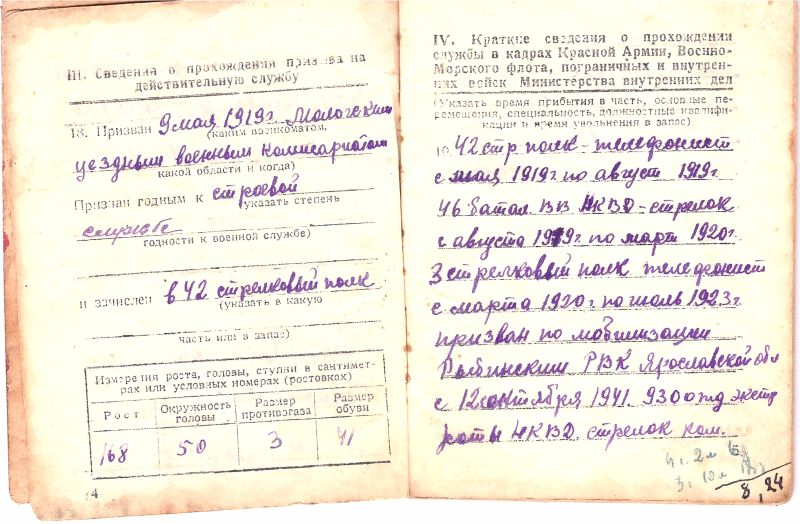 III. Сведения о прохождении призыва на
действительную службу
18. Призван 9 мая 1919 г. Мологским
(каким военкоматом,
уездным военным комисариатом
какой области и когда)
Признан годным к строевой
(указать степень
службе
годности к военной службе)
и зачислен в 42 стрелковый полк
(указать в какую
часть или в запас)
Измерения роста, головы, ступни в сантимет-
рах или условных номерах (ростовках)
Рост Окружность головы Размер противогаза Размер обуви
168 50 3 41
4
IV. Краткие сведения о прохождении
службы в кадрах Красной Армии, Военно-
Морского флота, пограничных и внутрен-
них войск Министерства внутренних дел
(Указать время прибытия в часть, основные пе-
ремещения, специальность, должностные квалифи-
кации и время увольнения в запас)
19. 42 стр полк - телефонист
с мая 1919 г по август 1919 г.
46 батал. ВВ НКВД - стрелок
с августа 1919 г. по март 1920 г.
3 стрелковый полк телефонист
с марта 1920 г. по июль 1923 г.
призван по мобилизации
Рыбинским РВК Ярославской обл
с 12 сентября 1941. 930
роты НКВД. стрелок ком.
8, 24